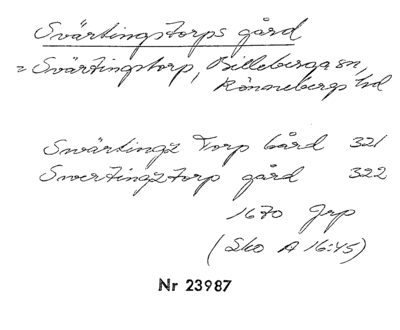 Svärtingstorps gård
= Svärtingstorp, Billeberga sn,
Rönnebergs hd
Swärtingz Torp Gård 321
Swertingztorp gård 322
1670 Jrp
(Sko A 16:45)
Nr 23987